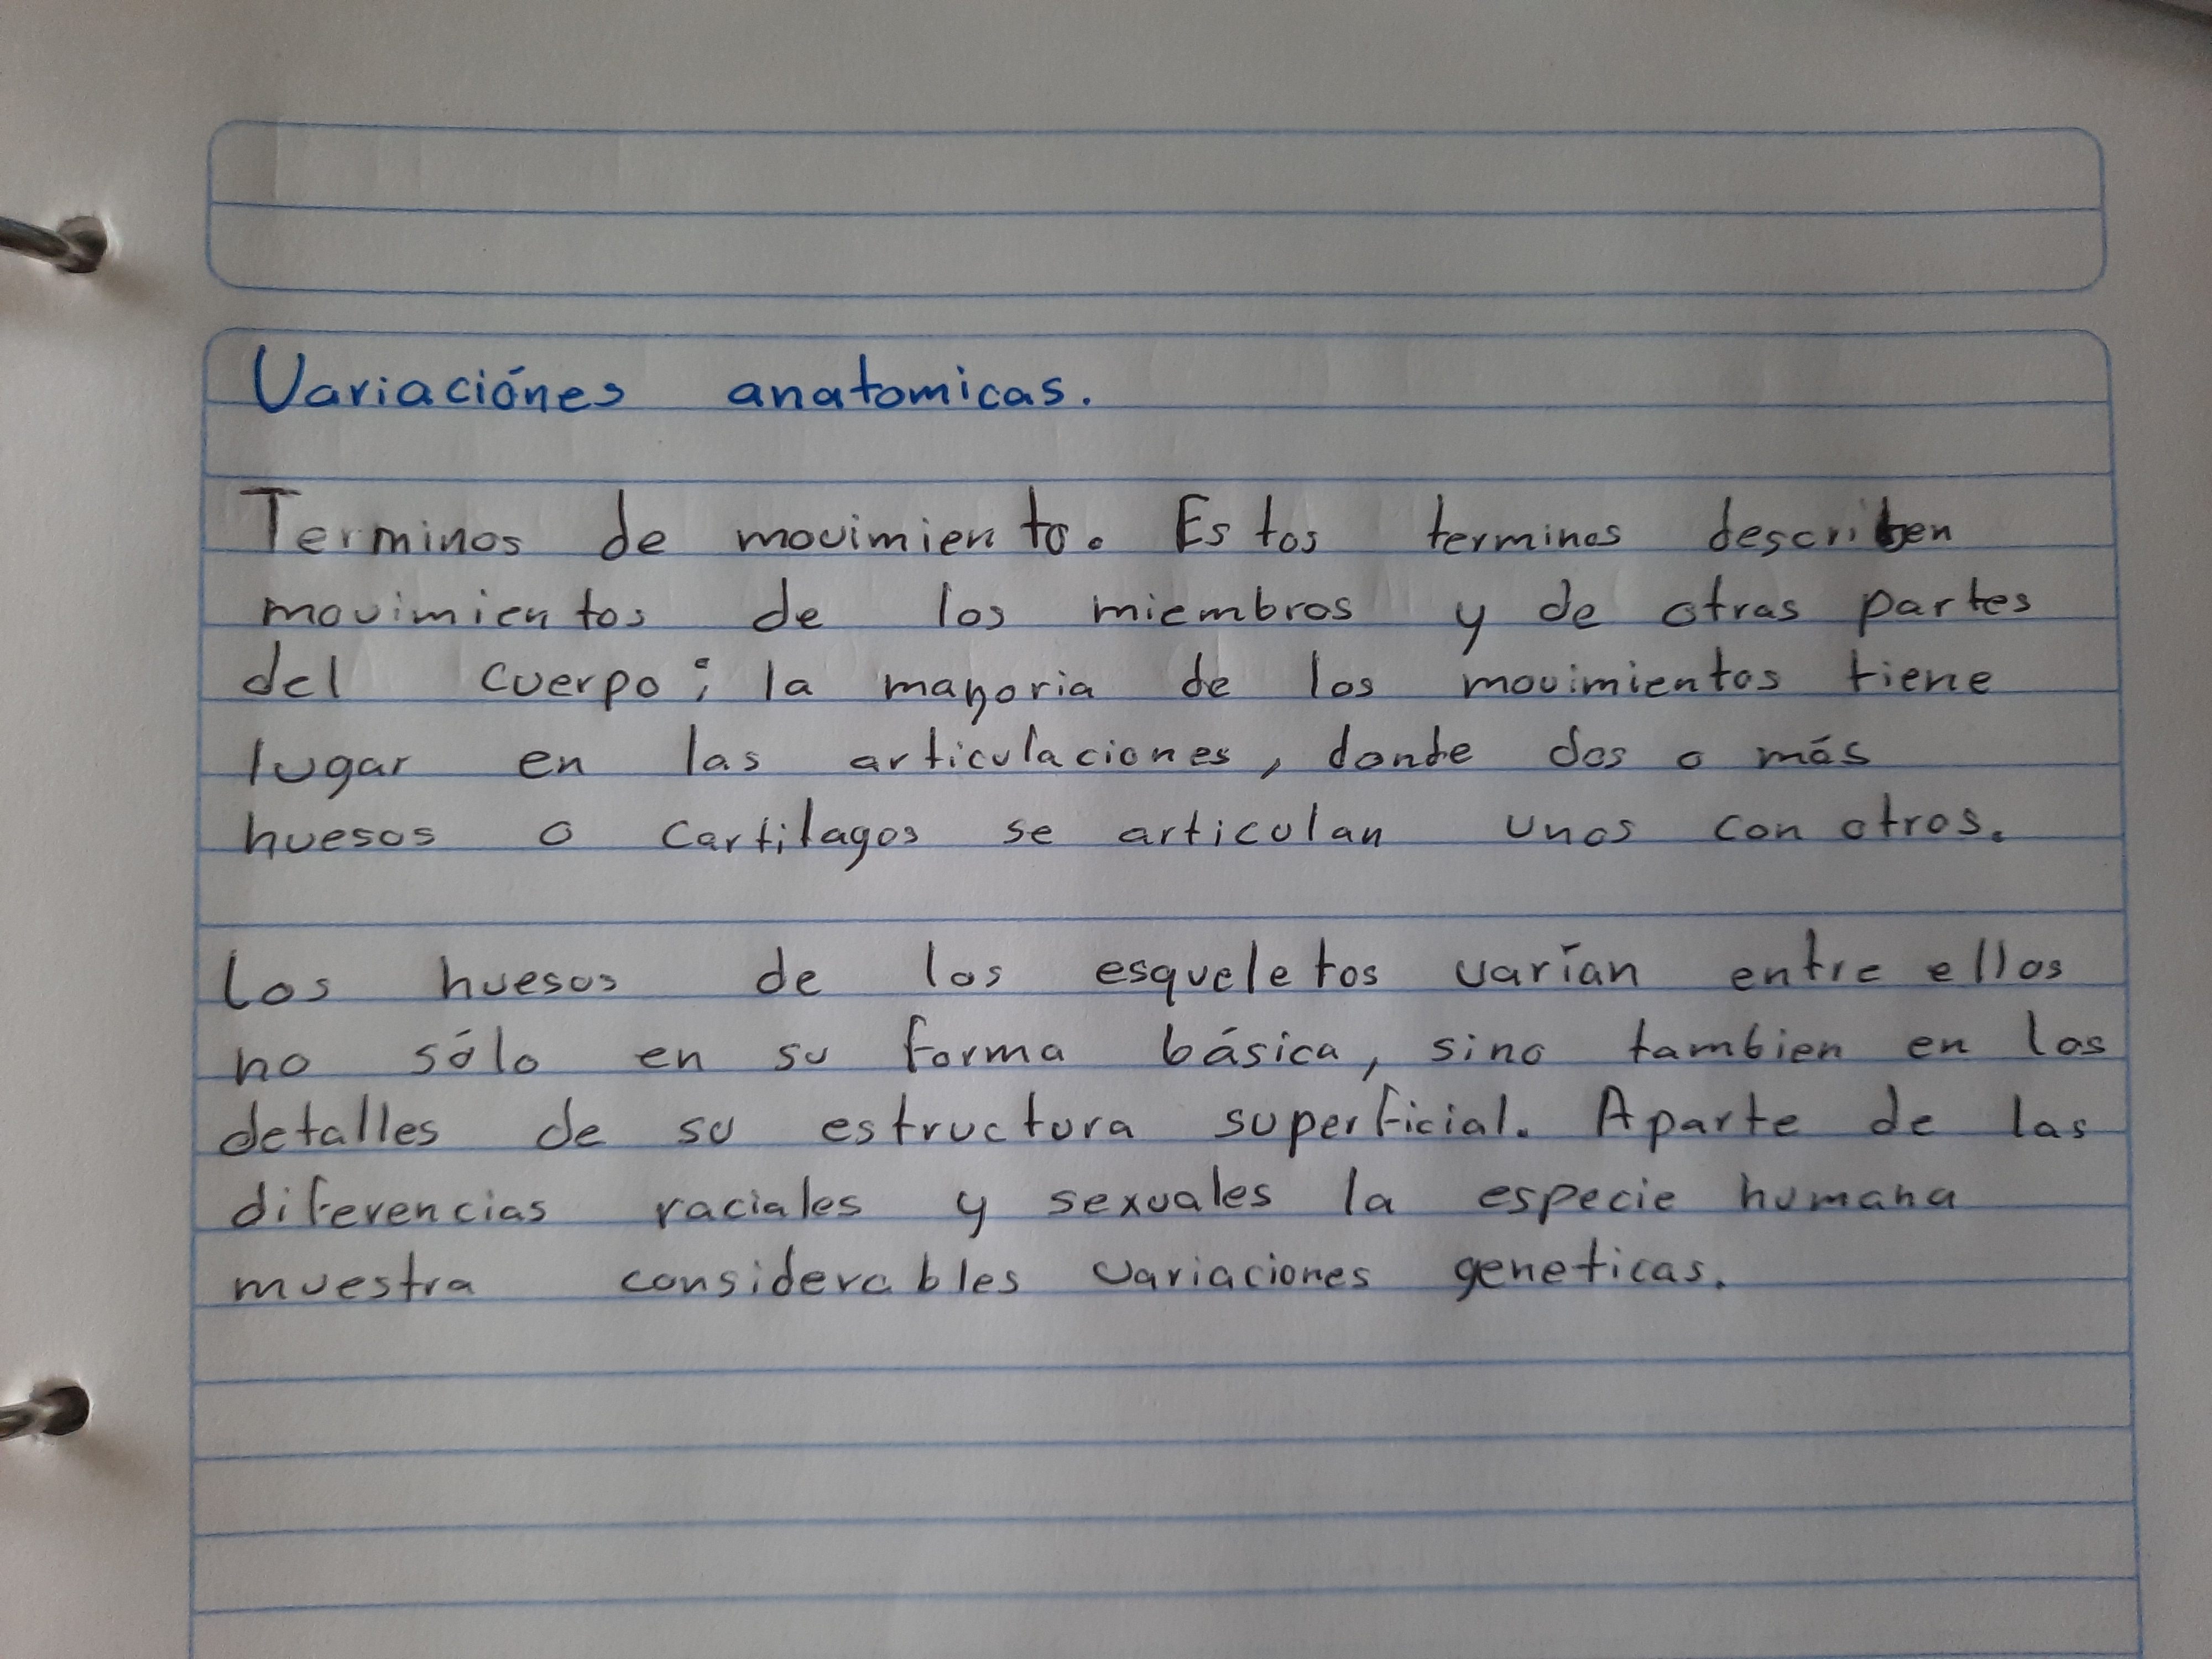 Variaciónes anatomicas.
Terminos de movimiento. Estos terminos describen
movimientos de los miembros y de otras partes
del cuerpo; la mayoria de los movimientos tiene
lugar en las articulaciones, donde dos o más
huesos o cartilagos se articulan unos con otros.
Los huesos de los esqueletos varían entre ellos
no sólo en su forma básica, sino tambien en los
detalles de su estructura superficial. Aparte de las
diferencias raciales y sexuales la especie humana
muestra considerables variaciones geneticas.